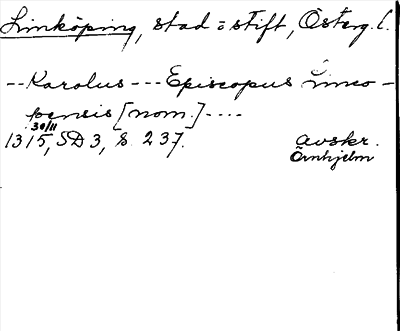 Linköping, stad o stift, Österg. l.
--Karolus---Episcopus Linco-
pensis [nom.]----
30/11
1315, SD 3, s. 237. avskr.
Örnhjelm